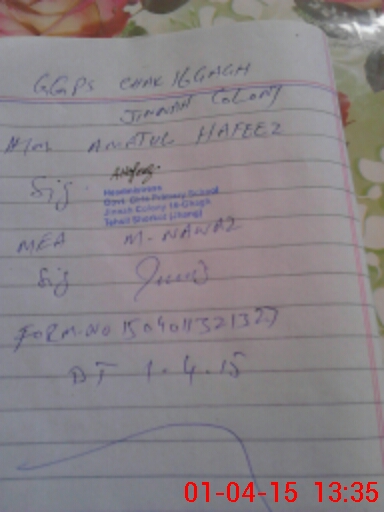 GGPS CHAK 16 GAGH
JINNAH COLONY
H/M AMATUL HAFEEZ
Sig.
Headmistress
Govt Girls Primary School
Jinnah Colony 16 Ghagh
MEA M. NAWAZ
Sig
FORM.NO
DT 1.4.15
01-04-15 13:35